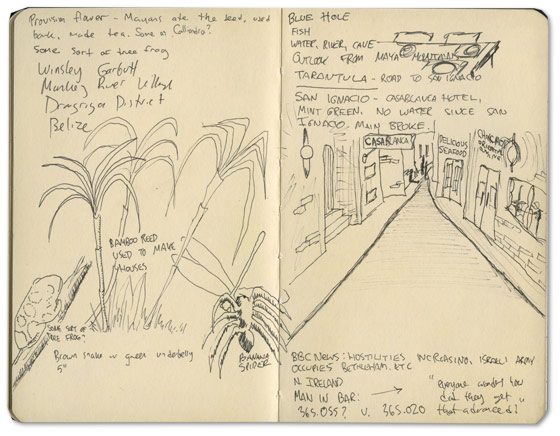 Provision flower - Mayans ate the seed, used
bark, made tea. Same as Calliandra?
Some sort of tree frog
Winsley Garbutt
Monkey River Village
District
Belize
BAMBOO REED
USED TO MAKE
HOUSES
SOME SORT OF
TREE FROG?
Brown snake w green underbelly
5"
BANANA
SPIDER
BLUE HOLE
FISH
WATER, RIVER, CAVE
OUTLOOK FROM MAYA MOUNTAINS
TARANTULA - ROAD TO SAN IGNACIO
SAN IGNACIO - CASABLANCA HOTEL,
MINT GREEN. NO WATER SINCE SAN
IGNACIO MAIN BROKE.
CASABLANCA
DELICIOUS
SEAFOOD
BBC NEWS: HOSTILITIES INCREASING, ISRAELI ARMY
OCCUPIES BETHLEHEM. ETC
N. IRELAND
MAN IN BAR: →
365.055? v. 365.020
"everyone wonders how
did they get
that advanced?"